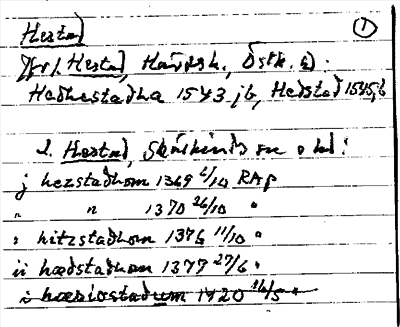 Herstad ①
Jfr 1. Herstad, Hävdsk., Östk. hd.
Hædhestadha 1543 jb, Hedstad 1545 jb
2. Herstad, Skärkinds sn o hd:
j hezstadhom 1369 6/10 RAp
" " 1370 26/10 "
i hitzstadhom 1376 11/10 "
ii hædstadhom 1377 27/6 "
i hæriostadum 1420 16/5 "